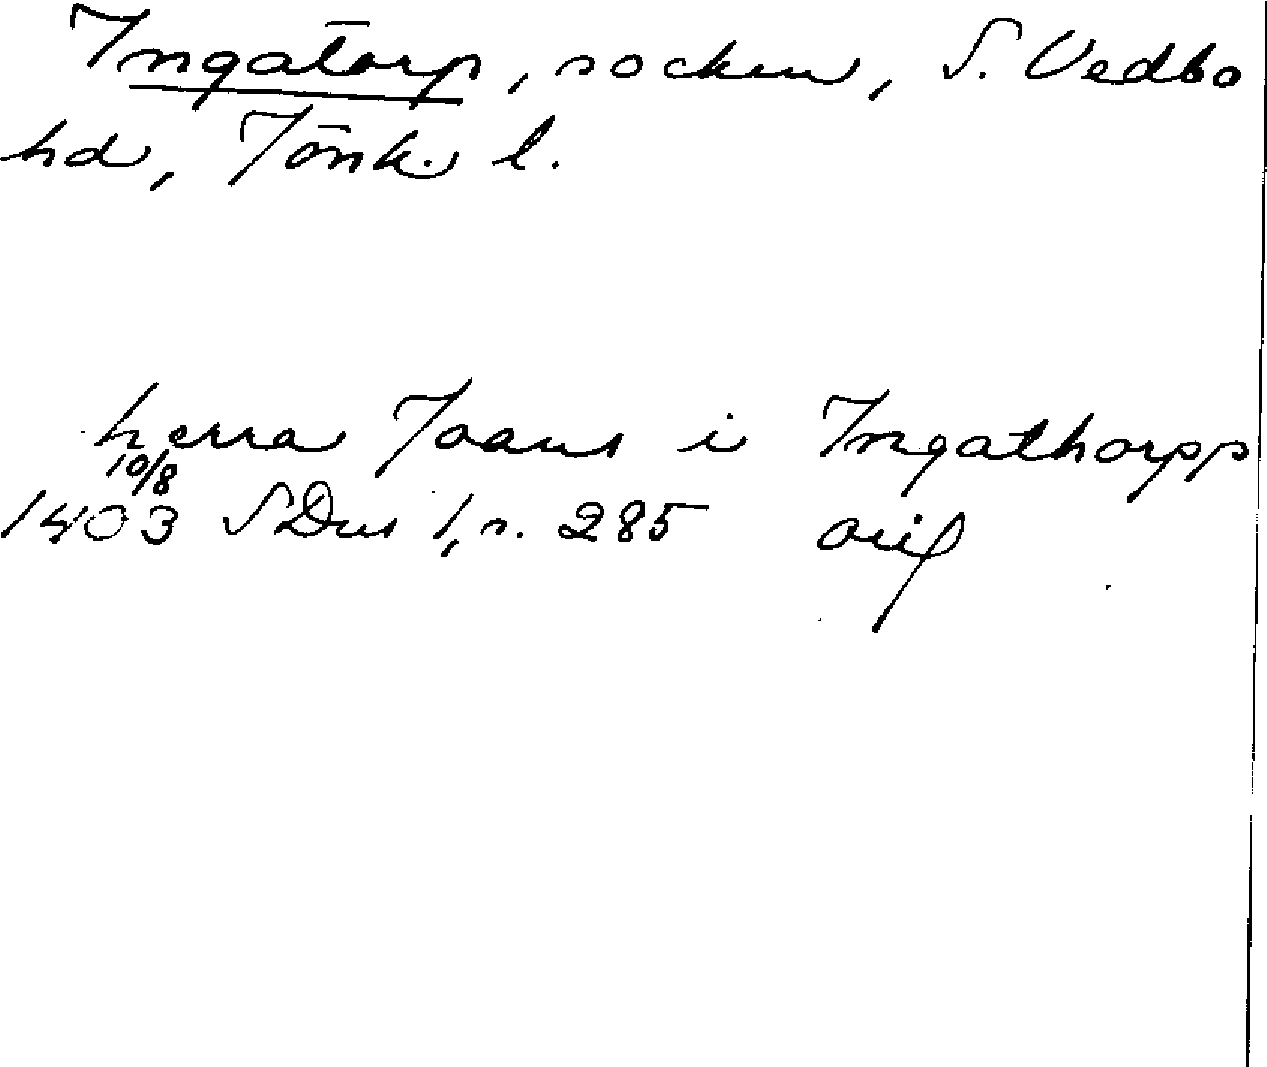 Ingatorp, socken, S. Vedbo
hd, Jönk. l.
herra Joans i Ingathorpp
10/8
1403 SDns 1, s. 285 orig